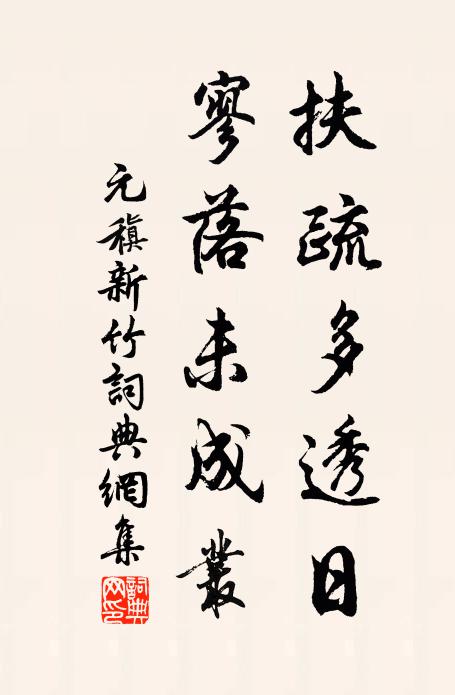 扶疏多透日
寥落未成叢
元稹新竹詞典網集
詞典网印